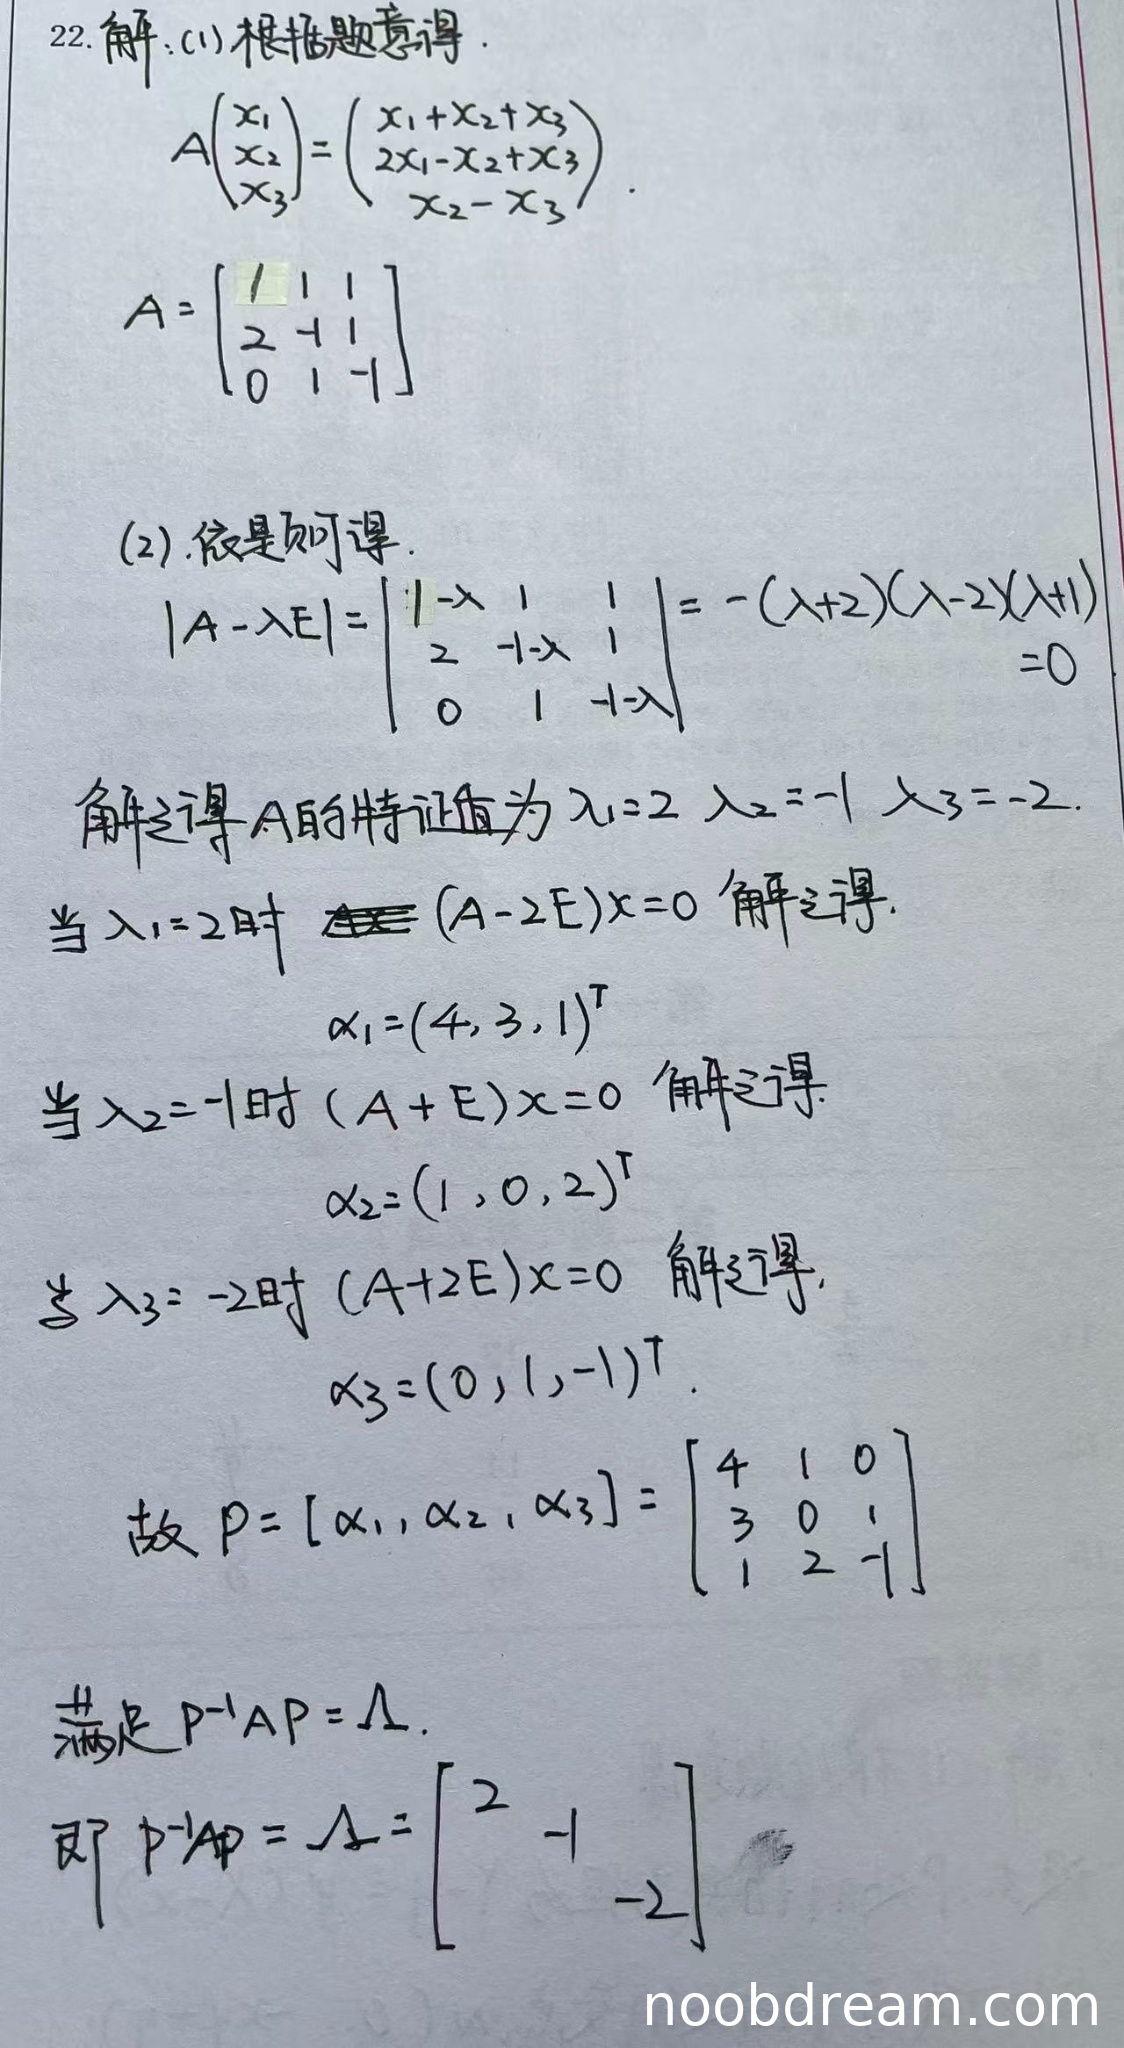 22. 解:(1)根据题意得.
A(x₁ x₂ x₃) = (x₁+x₂+x₃
2x₁-x₂+x₃
x₂-x₃).
A = [1 1 1
2 -1 1
0 1 -1]
(2).依题可得.
|A-λE| = |1-λ 1 1
2 -1-λ 1
0 1 -1-λ| = -(λ+2)(λ-2)(λ+1)
=0
解之得A的特征值为 λ₁=2 λ₂=-1 λ₃=-2.
当 λ₁=2时 (A-2E)x=0 解之得.
α₁=(4,3,1)ᵀ
当 λ₂=-1时 (A+E)x=0 解之得.
α₂=(1,0,2)ᵀ
当 λ₃=-2时 (A+2E)x=0 解之得.
α₃=(0,1,-1)ᵀ.
故 P=[α₁,α₂,α₃]= [4 1 0
3 0 1
1 2 -1]
满足 P⁻¹AP=Λ.
即 P⁻¹AP=Λ= [2
-1
-2]
noobdream.com